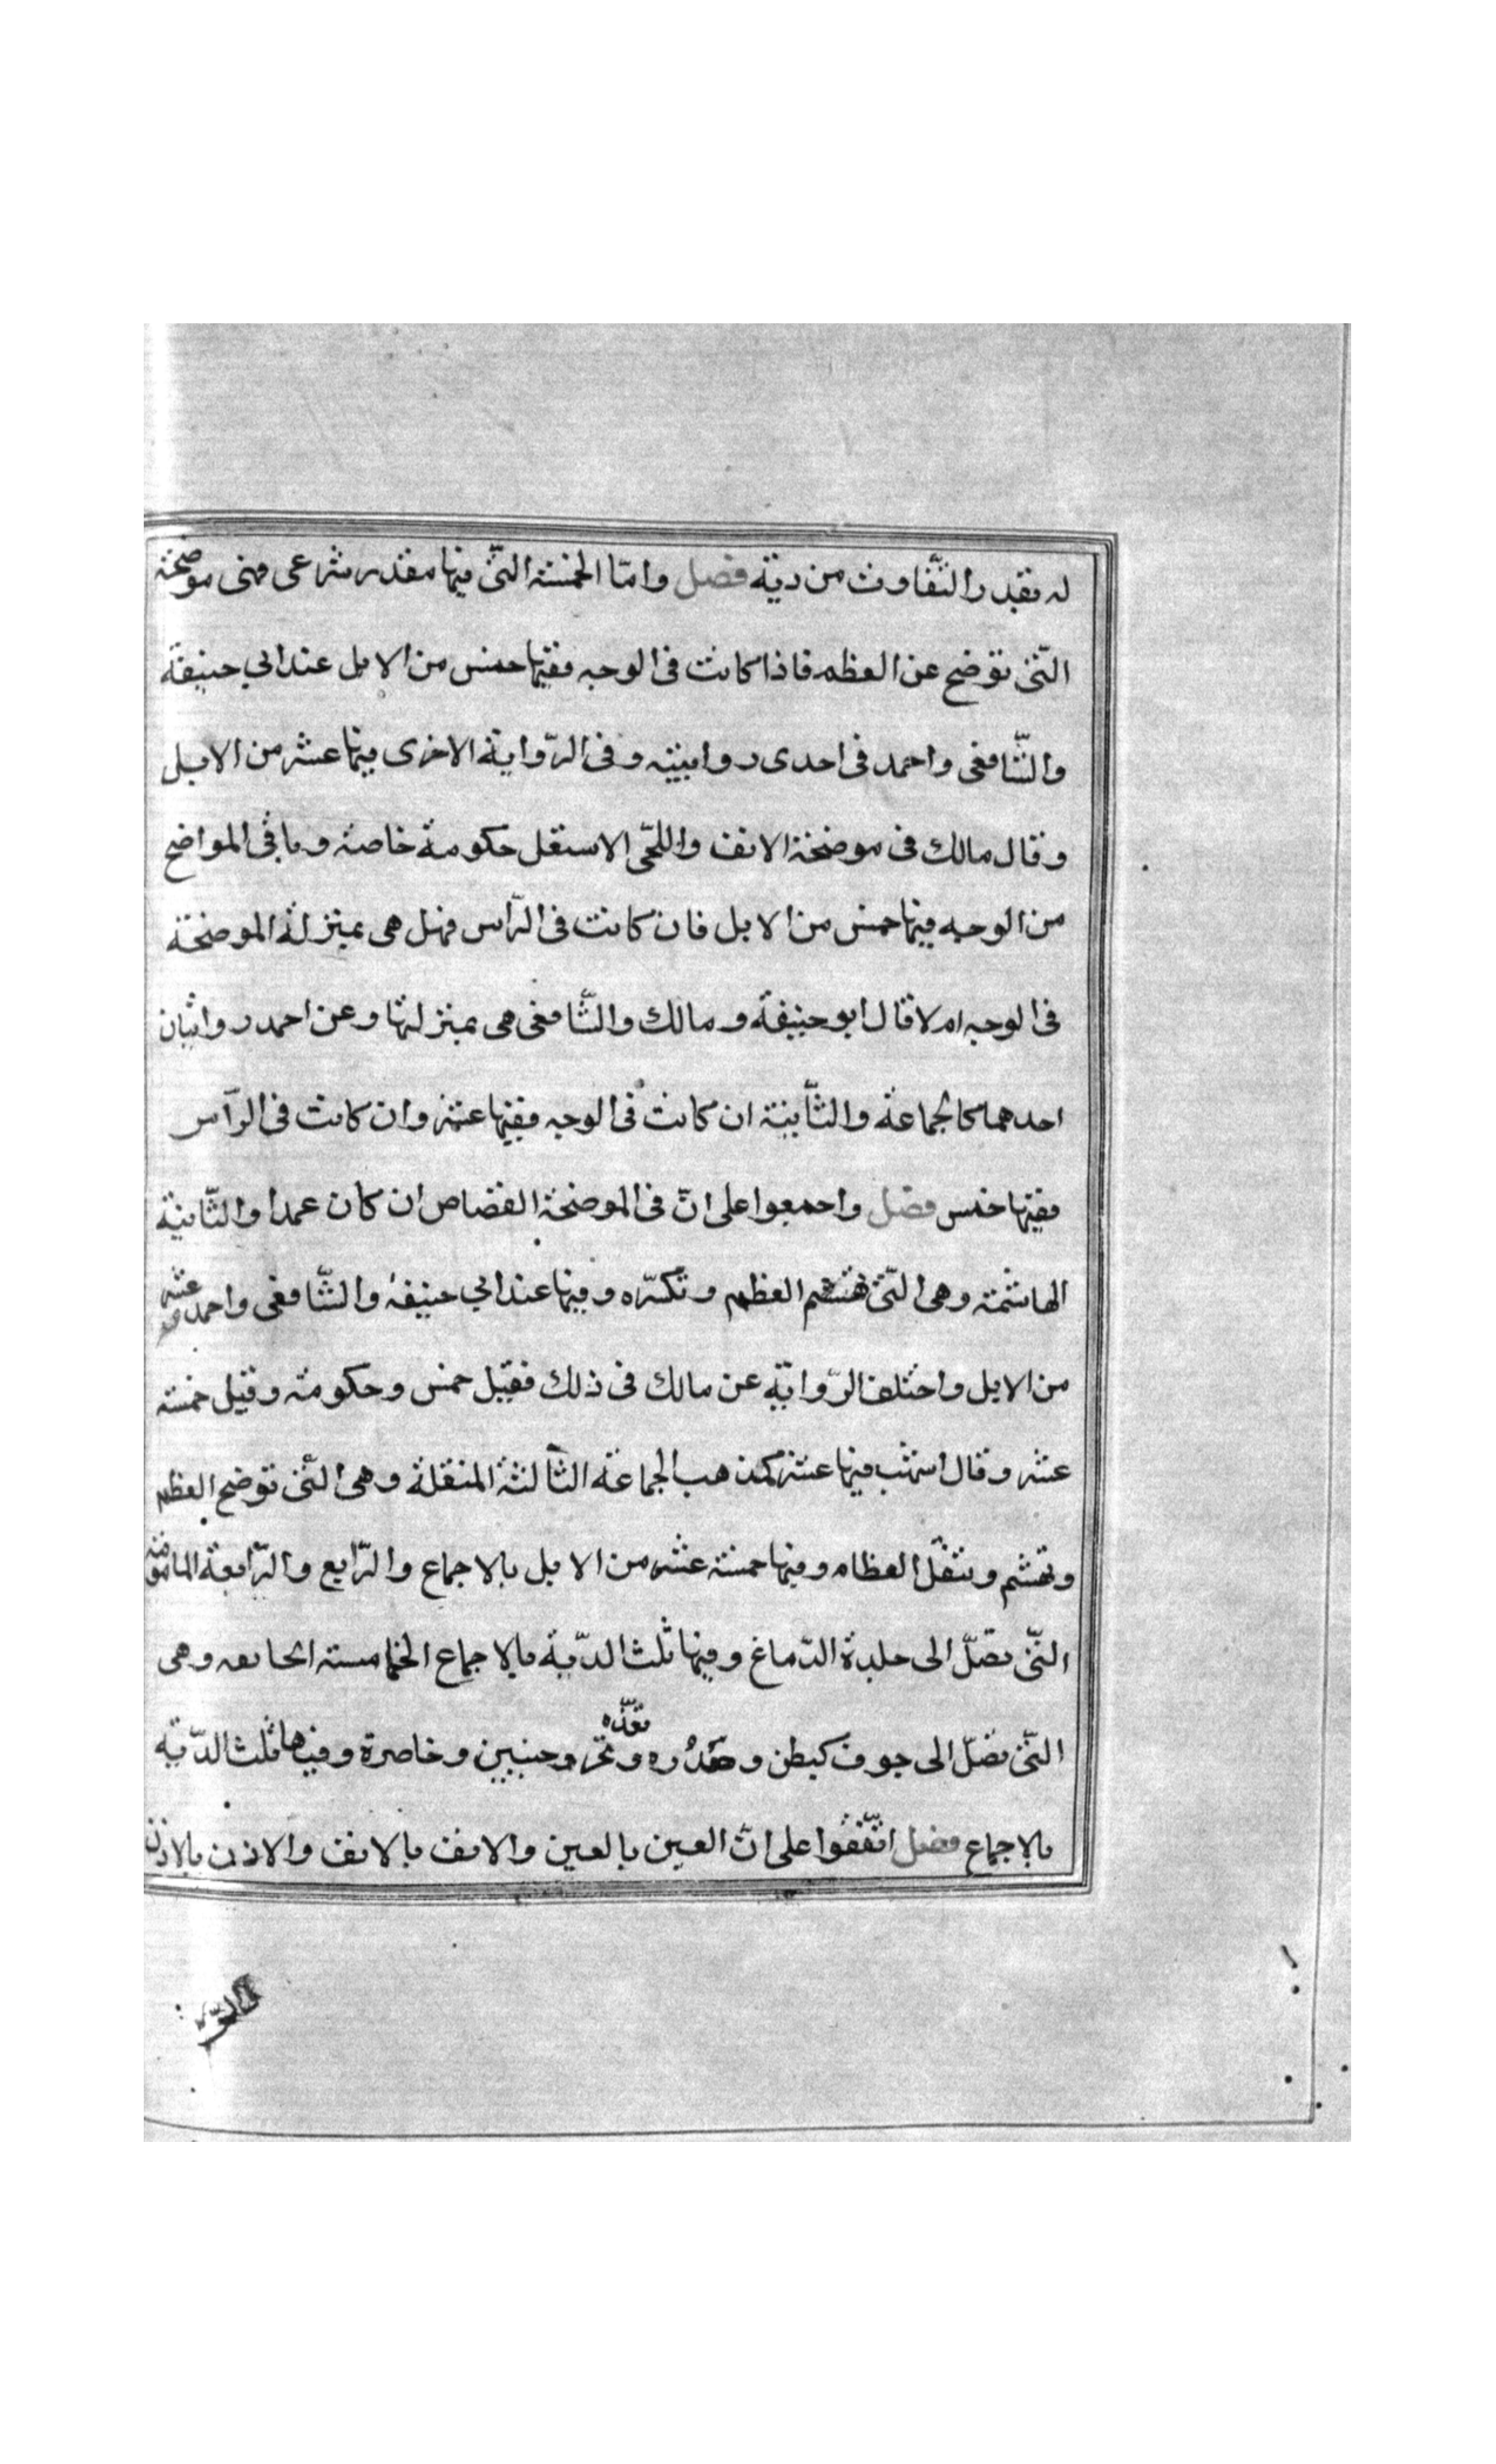 له بقدر التّفاوت من ديّة فصل وامّا الخمسة التّى فيها مقدر شرعى فهى موضحة
التّى توضح عن العظم فاذا كانت فى الوجه ففيها خمس من الابل عند ابي حنيفة
والشّافعى واحمد فى احدى روايتيه وفى الرّواية الاخرى فيها عشر من الابل
وقال مالك فى موضحة الانف واللحى الاسفل حكومة خاصة وباقى المواضح
من الوجه فيها خمس من الابل فان كانت فى الرّاس فهل هى بمنزلة الموضحة
فى الوجه ام لا قال ابو حنيفة ومالك والشّافعى هى بمنزلتها وعن احمد روايتان
احدهما كالجماعة والثّانية ان كانت فى الوجه ففيها عشر وان كانت فى الرّاس
ففيها خمس فصل واجمعوا على انّ فى الموضحة القصاص ان كان عمدا والثّانية
الهاشمة وهى التّى تهشم العظم وتكسّره وفيها عند ابي حنيفة والشّافعى واحمد عشر
من الابل واختلف الرّواية عن مالك فى ذلك فقيل خمس وحكومة وقيل خمسة
عشر وقال اشهب فيها عشر كمذهب الجماعة الثّالثة المنقلة وهى التّى توضح العظم
وتهشم وتنقّل العظام وفيها خمسة عشر من الابل بالاجماع والرّابع والرّابعة المامومة
التّى تصّل الى جلدة الدّماغ وفيها ثلث الدّية بالاجماع الخامسة الجايفه وهى
التّى تصّل الى جوف كبطن وصدره ونحر وجنبين وخاصرة وفيها ثلث الدّية
بالاجماع فصل اتّفقوا على انّ العين بالعين والانف بالانف والاذن بالاذن